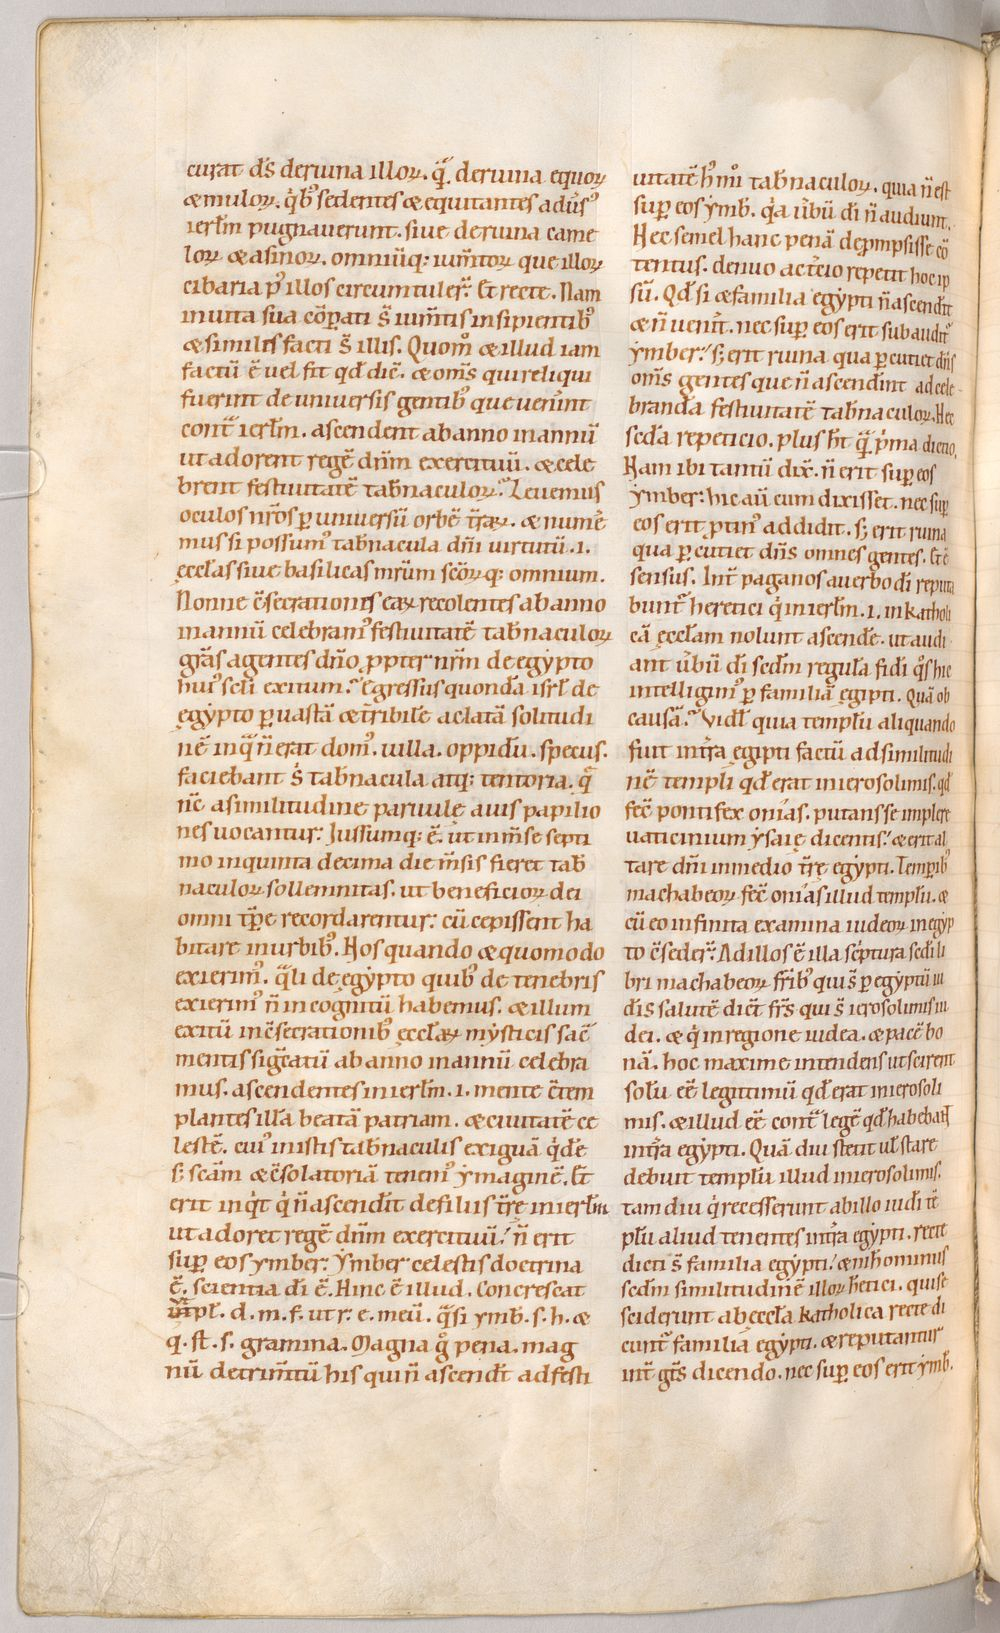 curat d̅s de ruina illoꝝ. q̅. de ruina equoꝝ
& muloꝝ. qͥbꝰ sedentes & equitantes aduͥsꝰ
ierlm̅ pugnauerunt. siue de ruina came
loꝝ & asinoꝝ. omniu̅q; ium̅toꝝ que illoꝝ
cibaria pꝰ illos circumtuler̅. Et recte. Nam
in uita sua co̅parati s̅ ium̅tis insipientibꝰ
& similes facti s̅ illis. Quom̊ & illud iam
factu̅ e̅ uel fit qd̅ dic̅. & om̅s qui reliqui
fuerint de uniuersis gentibꝰ que uener̅int
cont̅ ierlm̅. ascendent ab anno in annu̅
ut adorent rege̅ dn̅m exercituu̅. & cele
brent festiuitate̅ tabn̅aculoꝝ. Leuemus
oculos nr̅os ꝑ uniuersu̅ orbe̅ tr̅aꝝ. & num̅e
mus si possumꝰ tabn̅acula dn̅i uirtutu̅ .i.
ęccl̅as siue basilicas mr̅um sc̅oꝝq; omnium.
Nonne c̅secrationes eaꝝ recolentes ab anno
in annu̅ celebramꝰ festiuitate̅ tabn̅aculoꝝ
gr̅as agentes dn̅o ꝓpter nr̅m de egypto
huiꝰ scl̅i exitum. Egressus quonda̅ isrl̅ de
ęgypto ꝑ uasta̅ & tr̅ibile̅ ac lata̅ solitudi
ne̅ in qͣ n̅ erat domꝰ. uilla. oppidu̅. specus.
faciebant s̅ tabn̅acula atq; tentoria. q̅
nc̅ a similitudine paruulę auis papilio
nes uocantur. Jussumq; e̅. ut in m̅se septi
mo in quinta decima die m̅sis fieret tab̅
naculoꝝ sollemnitas. ut beneficioꝝ dei
omni tp̅re recordarentur. cu̅ cepissent ha
bitare in urbibꝰ. Nos quando & quomodo
exierimꝰ. qͣli de ęgypto quibꝰ de tenebris
exierimꝰ n̅ incognitu̅ habemus. & illum
exitu̅ in c̅secrationibꝰ ęccl̅aꝝ mysticis sac̅
mentis sig̅catu̅ ab anno in annu̅ celebra
mus. ascendentes in ierlm̅ .i. mente c̅tem
plantes illa̅ beata̅ patriam. & ciuitate̅ ce
leste̅. cuiꝰ in istis tabn̅aculis exigua̅ qͥd̅e
s; sc̅am & c̅solatoria̅ tenemꝰ ymagine̅. Et
erit inqͥt qͥ n̅ ascend̅it de filiis tr̅ę in ierlm̅
ut adoret rege̅ dn̅m exercituu̅. n̅ erit
suꝑ eos ymber. Ymber celestis doctrina
e̅. scientia di̅ e̅. Hinc e̅ illud. Concrescat
pl̅. d. m. f. ut r. e. meu̅. qͣsi ymb̅. s. h. &
q. st̅. s. gramina. Magna g̊ pena. mag
nu̅ detrim̅tu̅ his qui n̅ ascendt̅ ad festi
uitate̅ hꝰm̊i tabn̅aculoꝝ. quia n̅ est
suꝑ eos ymb̅. qͥa u̅bu̅ di̅ n̅ audiunt.
Hęc semel hanc pena̅ deꝓmpsisse co̅
tentus. denuo ac t̅cio repetit hoc ip
su̅. Qd̅ si & familia egypti n̅ ascend̅it
& n̅ uen̅it. nec suꝑ eos erit subauditͬ
ymber. s; erit ruina qua ꝑcutiet dn̅s
om̅s gentes que n̅ ascend̅int ad cele
branda̅ festiuitate̅ tabn̅aculoꝝ. Hęc
sed̅a repeticio. plus ht̅ qͣ pͥma dictio.
Nam ibi tantu̅ dix̅. n̅ erit suꝑ eos
ymber: hic au̅ cum dixisset. nec suꝑ
eos erit ꝓtinꝰ addidit. s; erit ruina
qua ꝑcutiet dn̅s omnes gentes. Et e̅
sensus. Int̅ paganos a uerbo di̅ reputa
buntͬ heretici qͥ in ierlm̅ .i. in katholi
ca̅ ęccl̅am nolunt ascende̅. ut audi
ant u̅bu̅ di̅ scd̅m regula̅ fidi qͦs hic
intelligimꝰ ꝑ familia̅ ęgipti. Qua̅ ob
causa̅. Vidl̅ quia templu̅ aliquando
fuit intͣra ęgipti factu̅ ad similitudi
ne̅ templi qd̅ erat in ierosolimis. qd̅
fec̅ pontifex onias. putans se implere
uaticinium ysaię dicentis. & erit al
tare dn̅i in medio tr̅ę egypti. Tempribꝰ
machabeoꝝ fec̅ onias illud templu̅. &
cu̅ eo infinita examina iudeoꝝ in egyp
to c̅seder̅. Ad illos e̅ illa sc̅ptura sed̅i li
bri machabeoꝝ fr̅ibꝰ qui s̅ ꝑ egyptu̅ iu
d̅is salute̅ dict̅ fr̅s qui s̅ ierosolimis iu
dei. & qͥ in regione iudea. & pace̅ bo
na̅. hoc maxime intendens ut scirent
solu̅ ee̅ legitimu̅ qd̅ erat in ierosoli
mis. & illud ee̅ cont̅ lege̅ qd̅ habebatͬ
intͣra egypti. Qua̅ diu stetit ul̅ stare
debuit templu̅ illud in ierosolimis.
tam diu qͥ recesserunt ab illo iud̅i te̅
plu̅ aliud tenentes intͣra egypti. recte
dicti s̅ familia egypti. & nihominus
scd̅m similitudine̅ illoꝝ h̅etici. qui se
sciderunt ab ęccl̅a katholica recte di
cuntͬ familia egypti. & reputantur
int̅ gt̅s dicendo. nec suꝑ eos erit ymb̅.